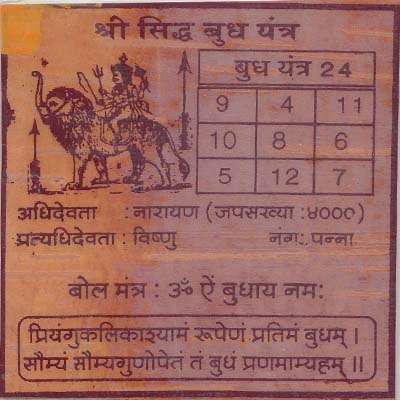 श्री सिद्ध बुध यंत्र
बुध यंत्र 24
9 4 11
10 8 6
5 12 7
अधिदेवता : नारायण (जपसख्या : ४०००)
प्रत्यधिदेवता : विष्णु नंग: पन्ना
बोल मंत्र : ॐ ऐं बुधाय नम:
प्रियंगुकलिकाश्यामं रूपेणं प्रतिमं बुधम् ।
सौम्यं सौम्यगुणोपेतं तं बुधं प्रणमाम्यहम् ॥